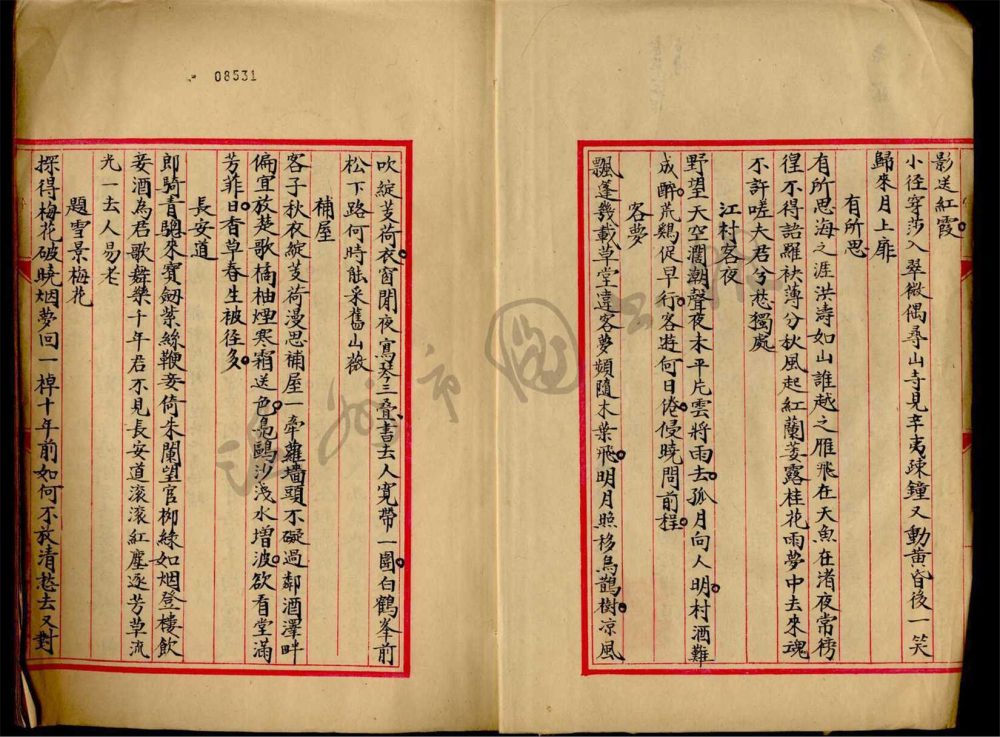 影送紅霞
小径穿莎入翠微偶尋山寺見辛夷疎鐘又動黃昏後一笑
歸來月上扉
有所思
有所思海之涯洪濤如山誰越之雁飛在天魚在渚夜常徬
徨不得詒羅袂薄兮秋風起紅蘭萎露桂花雨夢中去來魂
不許嗟夫君兮愁獨處
江村客夜
野望天空濶潮聲夜本平片雲將雨去孤月向人明村酒難
成醉荒鷄促早行客遊何日倦侵曉問前程
客夢
飄蓬幾載草堂違客夢頻隨木葉飛明月照移烏鵲樹凉風
08531
吹綻芰荷衣窗閒夜寫琴三叠書去人寬帶一圍白鶴峯前
松下路何時能采舊山薇
補屋
客子秋衣綻芰荷漫思補屋一牽蘿墻頭不礙過鄰酒澤畔
偏宜放楚歌橘柚煙寒霜送色鳧鷗沙淺水增波欲看堂滿
芳菲日香草春生被径多
長安道
郎騎青驄來寶劔紫絲鞭妾倚朱闌望官栁綠如烟登樓飲
妾酒為君歌舞樂千年君不見長安道滚滚紅塵逐芳草流
光一去人易老
題雪景梅花
探得梅花破曉烟夢回一棹十年前如何不放清愁去又對